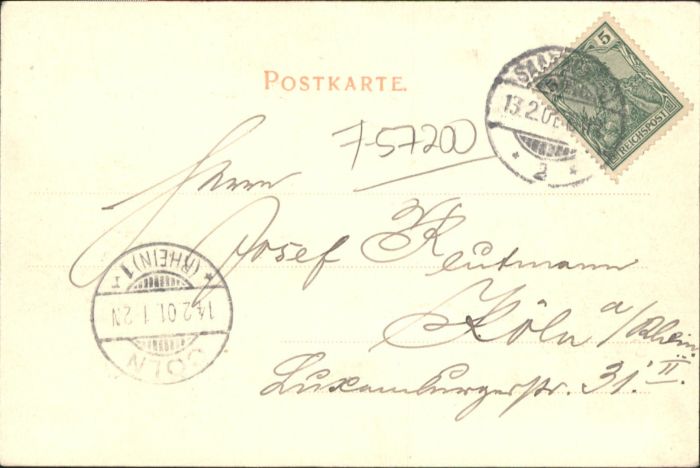 POSTKARTE.
5
REICHSPOST
13.2.01
2
7-57200
Herrn
Josef Reutmann
Köln a/Rhein.
Luxemburgerstr. 31. II.
CÖLN
14.2.01.1-2N
* (RHEIN) 1 *